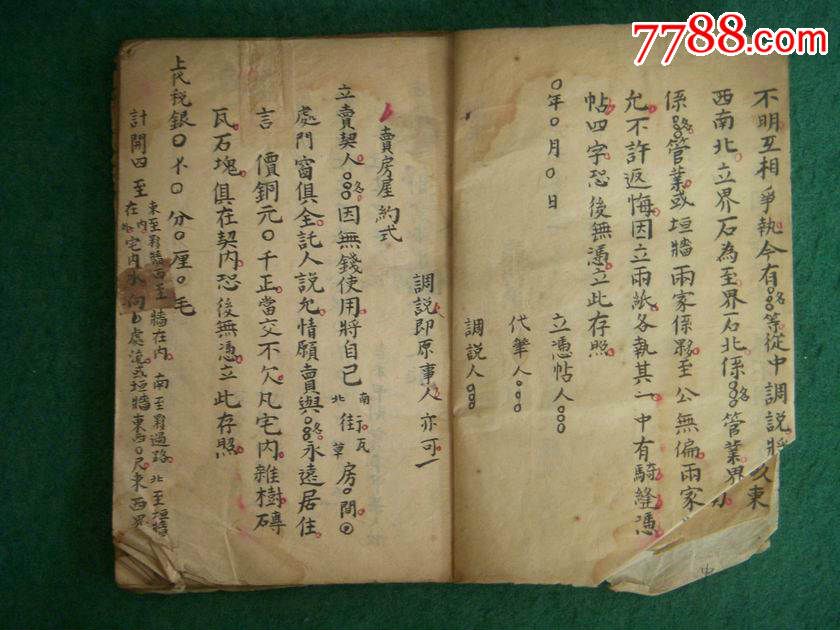 7788.com
不明互相爭執今有〇〇〇等從中調說將父東
西南北立界石為至界石北係〇〇〇管業界
係〇〇〇管業或垣牆兩家係夥至公無偏兩家
允不許返悔因立兩紙各執其一中有騎縫憑
帖四字恐後無憑立此存照
〇年〇月〇日
立憑帖人〇〇〇
代筆人〇〇〇
調說人〇〇〇
調說即原事人亦可一
賣房屋約式
立賣契人〇〇〇因無錢使用將自己南北住瓦草房〇間
處門窗俱全託人說允情願賣與〇〇〇永遠居住
言價銅元〇千正當交不欠凡宅內雜樹磚
瓦石塊俱在契內恐後無憑立此存照
上代稅銀〇不〇分〇厘〇毛
計開四至東至牆南至牆在內南至過路北至垣牆
在內宅內水向〇處流或垣牆東西〇尺東西界
中